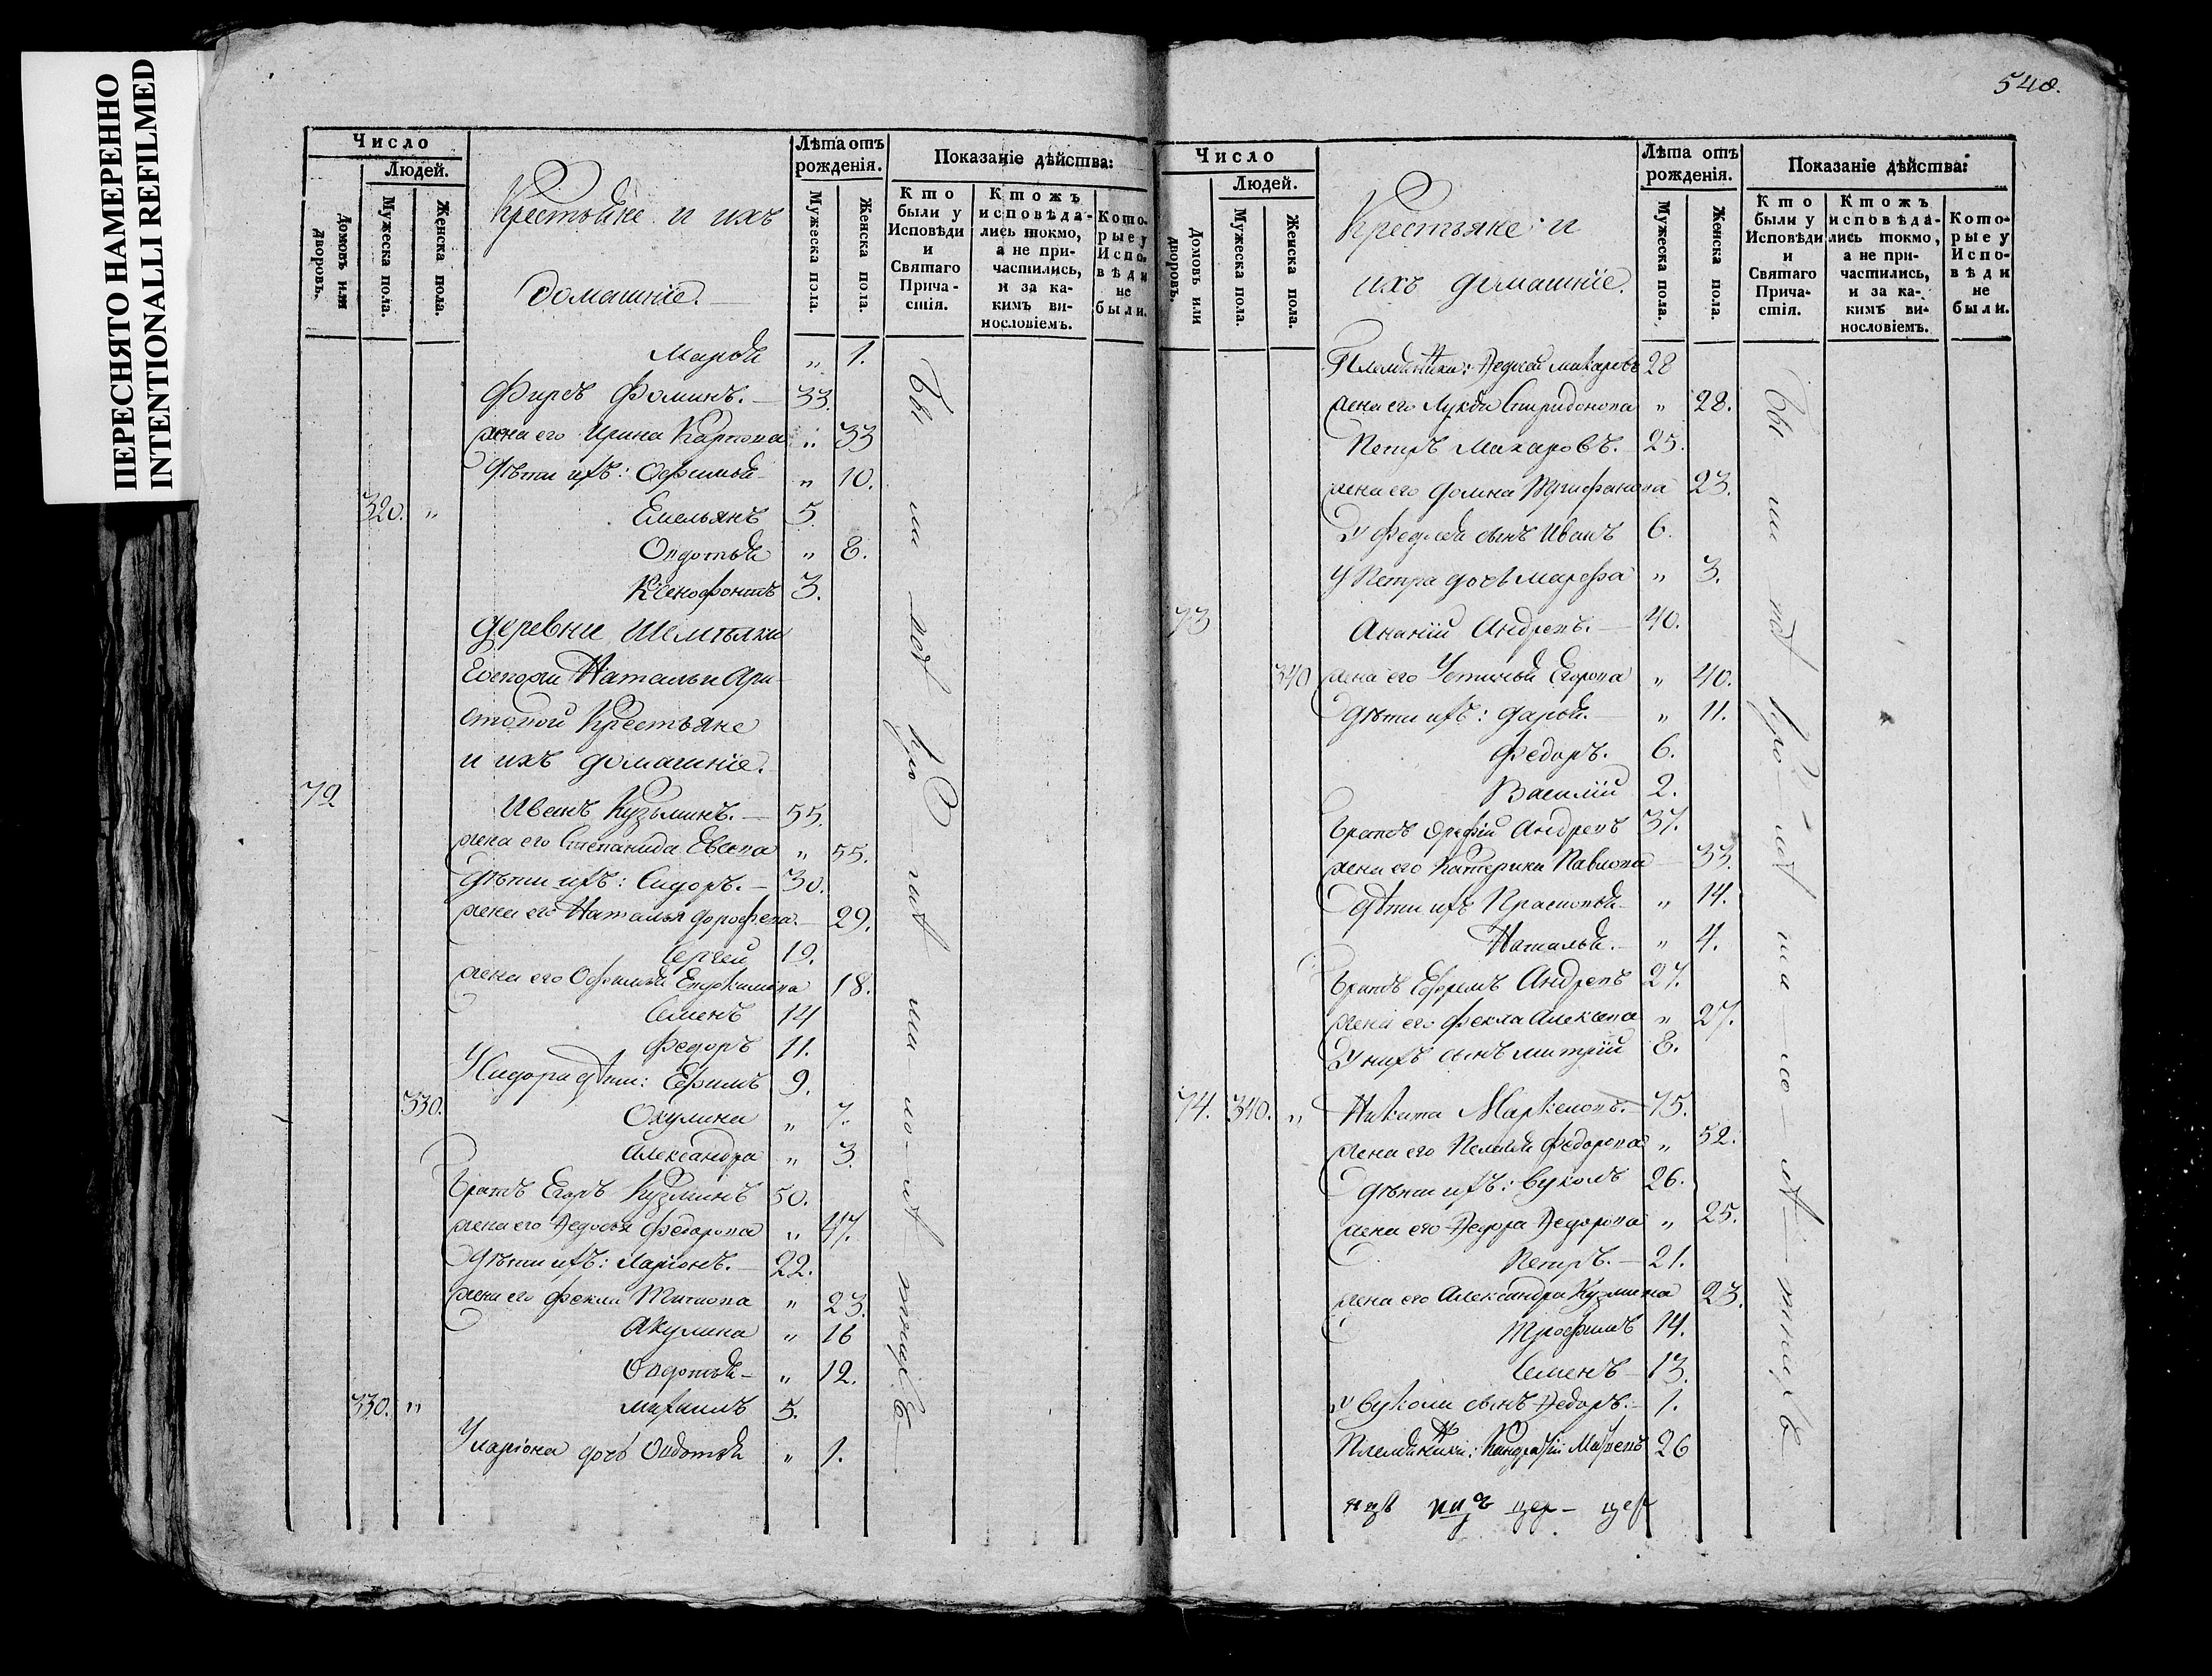 ПЕРЕСНЯТО НАМЕРЕННО
INTENTIONALLI REFILMED
Число
Людей.
Домовъ или дворовъ.
Мужеска пола.
Женска пола.
Крестьяне и ихъ
домашніе.
Лѣта отъ рожденія.
Мужеска пола.
Женска пола.
Показаніе дѣйства:
Кто были у Исповѣди и Святаго Причастія.
Ктожъ исповѣдались токмо, а не причастились, и за какимъ винословіемъ.
Которые у Исповѣди не были.
Марья " 1.
Фирсъ Фоминъ. 33.
жена его Ирина Карпова " 33
Дѣти ихъ: Офимья " 10.
320. " Емельянъ 5.
Овдотья " 8.
Ксенофонтъ 3.
деревни
Госпожи Натальи Ари-
стовой Крестьяне
и ихъ домашніе.
72 Иванъ Кузьминъ. 55.
жена его Степанида Евсева " 55.
Дѣти ихъ: Сидоръ. 30.
жена его Наталья Дорофева. 29.
Сергей 19.
жена его Офимья 18.
Семенъ 14
Федоръ 11.
У Сидора дѣти: Ефимъ 9.
330. Окулина " 7.
Александра " 3.
Братъ Егоръ Кузминъ 50.
жена его Федосья Федорова " 47.
Дѣти ихъ: Ларіонъ. 22.
жена его Фекла Титова " 23.
Акулина " 16
Овдотья " 12.
330. " Михаилъ 5.
У Ларіона дочь Овдотья " 1.
бы ли
548.
Число
Людей.
Домовъ или дворовъ.
Мужеска пола.
Женска пола.
Крестьяне и
ихъ домашніе.
Лѣта отъ рожденія.
Мужеска пола.
Женска пола.
Показаніе дѣйства:
Кто были у Исповѣди и Святаго Причастія.
Ктожъ исповѣдались токмо, а не причастились, и за какимъ винословіемъ.
Которые у Исповѣди не были.
Племянники: Федсей Макаровъ 28
жена его Лукья Спиридонова " 28.
Петръ Макаровъ. 25.
жена его Домна Трифанова 23.
У Федсея сынъ Иванъ 6.
У Петра дочь Марфа " 3.
73 Ананій Андревъ. 40.
340 жена его Устинья Егорова " 40.
Дѣти ихъ: Дарья. " 11.
Федоръ. 6.
Василій 2.
Братъ Орефій Андревъ 37.
жена его Катерина Павлова 33.
Дѣти ихъ Прасковья " 14.
Наталья. " 4.
Братъ Ефремъ Андревъ 27.
жена его Фекла Алексева " 27.
У нихъ сынъ Митрій 8.
74. 340. " Никита Маркеловъ. 75.
жена его Пелагея Федорова " 52.
Дѣти ихъ: Вуколъ 26.
жена его Федора Федорова " 25.
Петръ. 21.
жена его Александра Кузмина 23.
Трофимъ 14.
Семенъ 13.
У Вукола сынъ Федоръ. 1.
Племянники: Кандратій 26
бы ли